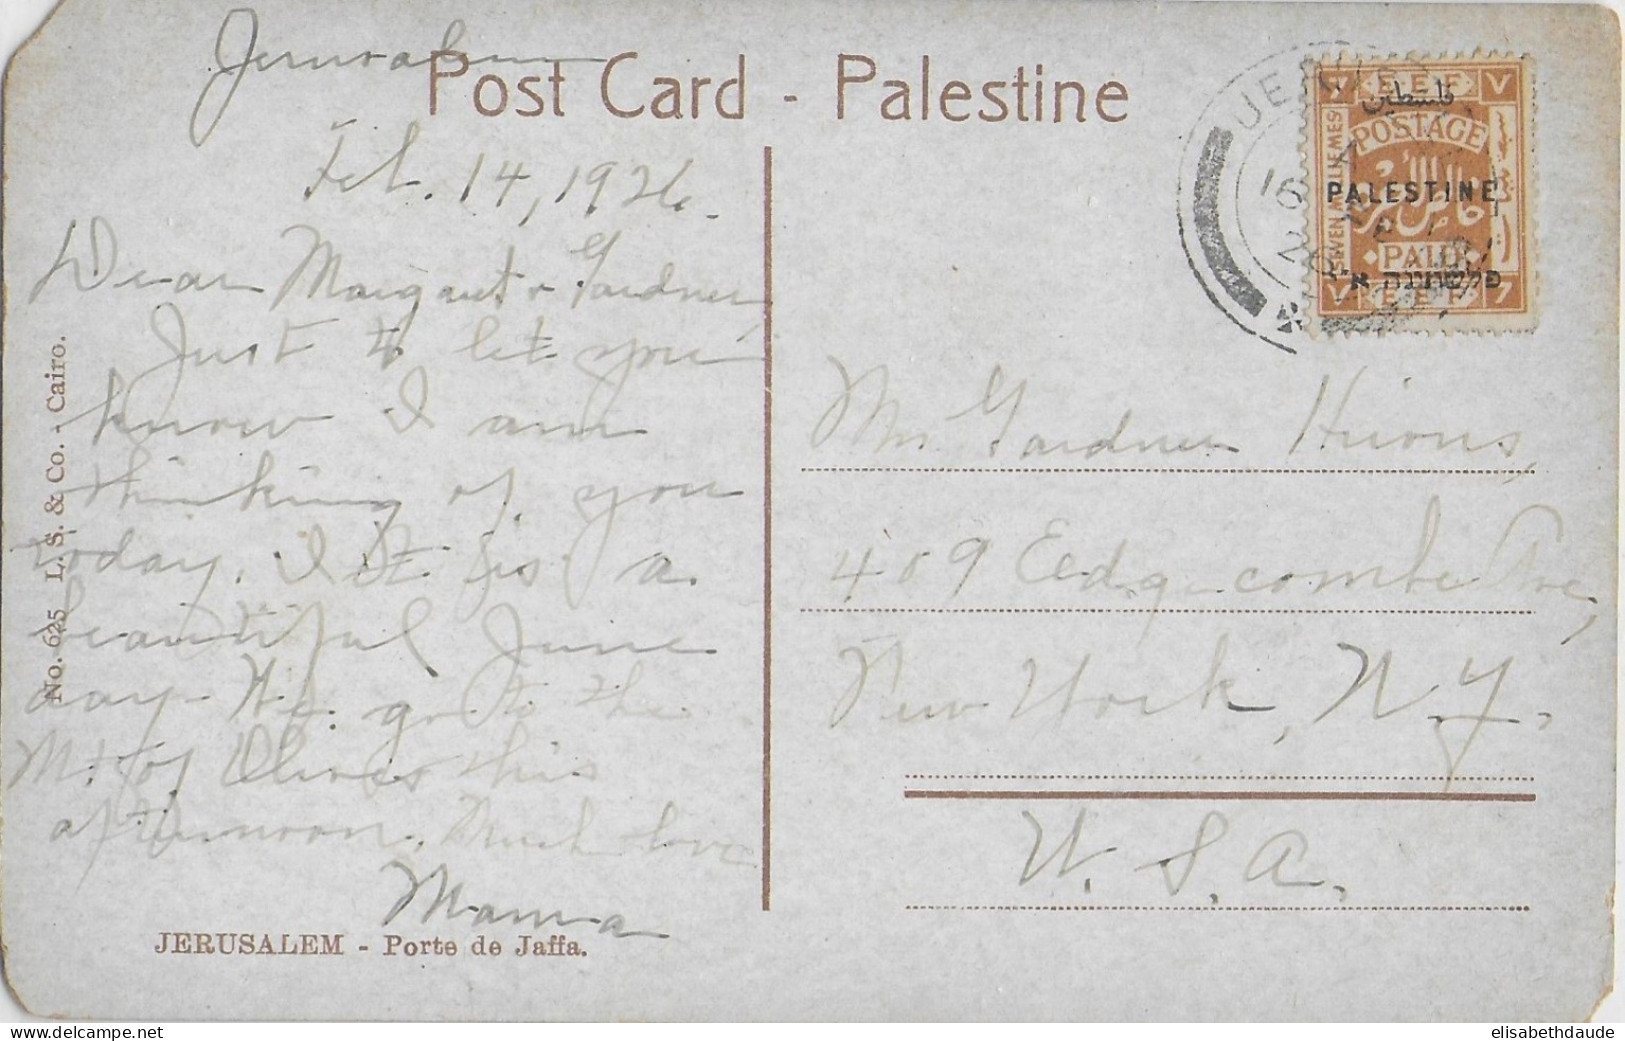 Post Card - Palestine
Jerusalem
Feb. 14, 1926.
Dear Margaret & Gardner,
Just to let you
know I am
thinking of you
today. It is a
beautiful June
day - We go to the
Mt. of Olives this
afternoon. Much love
Mama
JERUSALEM - Porte de Jaffa.
No. 625 L. S. & Co. - Cairo.
JE
16
E.E.F
فلسطين
POSTAGE
SEVEN MILLIEMES
PALESTINE
PAID
פלשתינה אי
E.E.F
7
Mr. Gardner Hirons,
409 Edgecombe Ave,
New York, N.Y.
U.S.A.
delcampe.net
elisabethdaude